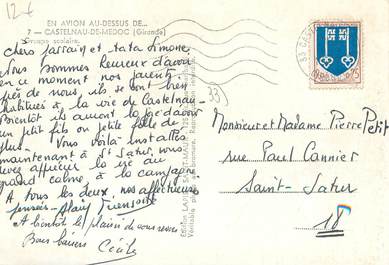 12 €
EN AVION AU-DESSUS DE...
7 — CASTELNAU-DE-MEDOC (Gironde)
Groupe scolaire.
Chers parrain et tata Simone,
Nous sommes heureux d'avoir
en ce moment nos parents
près de nous, ils se sont bien
habitués à la vie de Castelnau.
Bientôt ils auront la joie d'avoir
un petit fils ou petite fille de
plus. Vous voilà installés
maintenant à St Satur, vous
devez apprécier la vie au
grand calme à la campagne
A tous les deux nos affectueuses
pensées.
A bientôt le plaisir de vous revoir
Bons baisers
Cécile
33)
Monsieur et Madame Pierre Petit
rue Paul Cannier
Saint-Satur
18